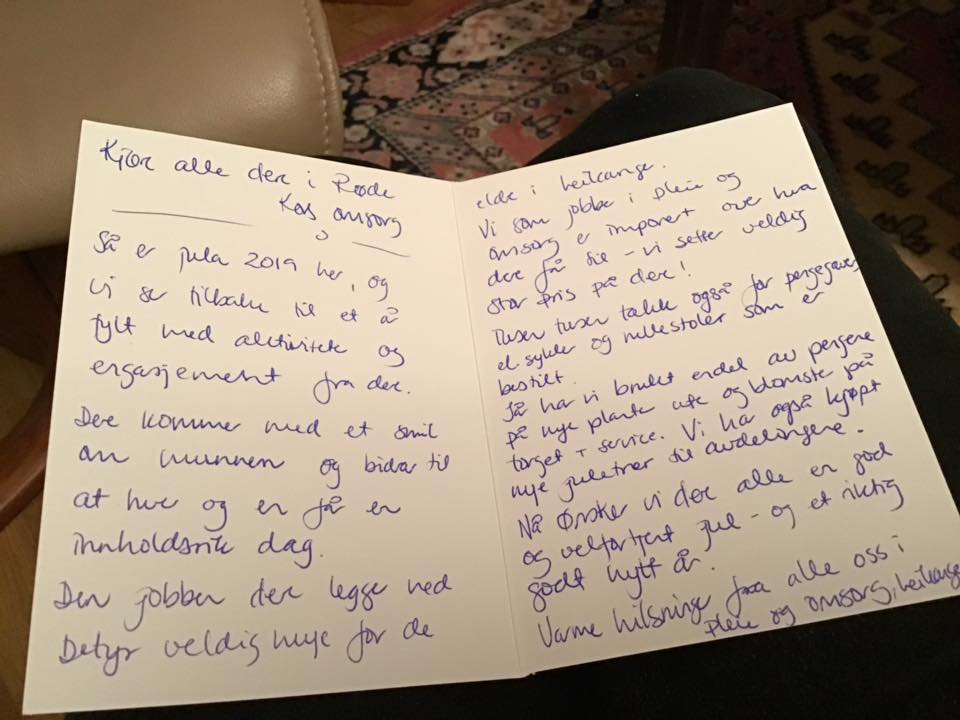 Kjære alle dere i Røde
Kors omsorg
Så er jula 2019 her, og
vi ser tilbake til et å
fylt med aktivitete og
engasjement fra dere.
Dere kommer med et smil
om munnen og bidrar til
at hve og en får en
innholdsrik dag.
Den jobben dere legge ned
Betyr veldig mye for de
elde i
Vi som jobbe i pleie og
omsorg e imponert over hva
dere få til - vi sette veldig
stor pris på dere!
Tusen tusen takk også for pengegaver,
el.sykler og rullestoler som er
bestilt.
Så har vi brukt endel av pengene
på nye plante ute og blomste på
torget + service. Vi har også kjøpt
nye juletrær til avdelingene.
Nå ønsker vi dere alle en god
og velfortjent jul - og et riktig
godt nytt år.
Varme hilsninge fra alle oss i
Pleie og omsorg,